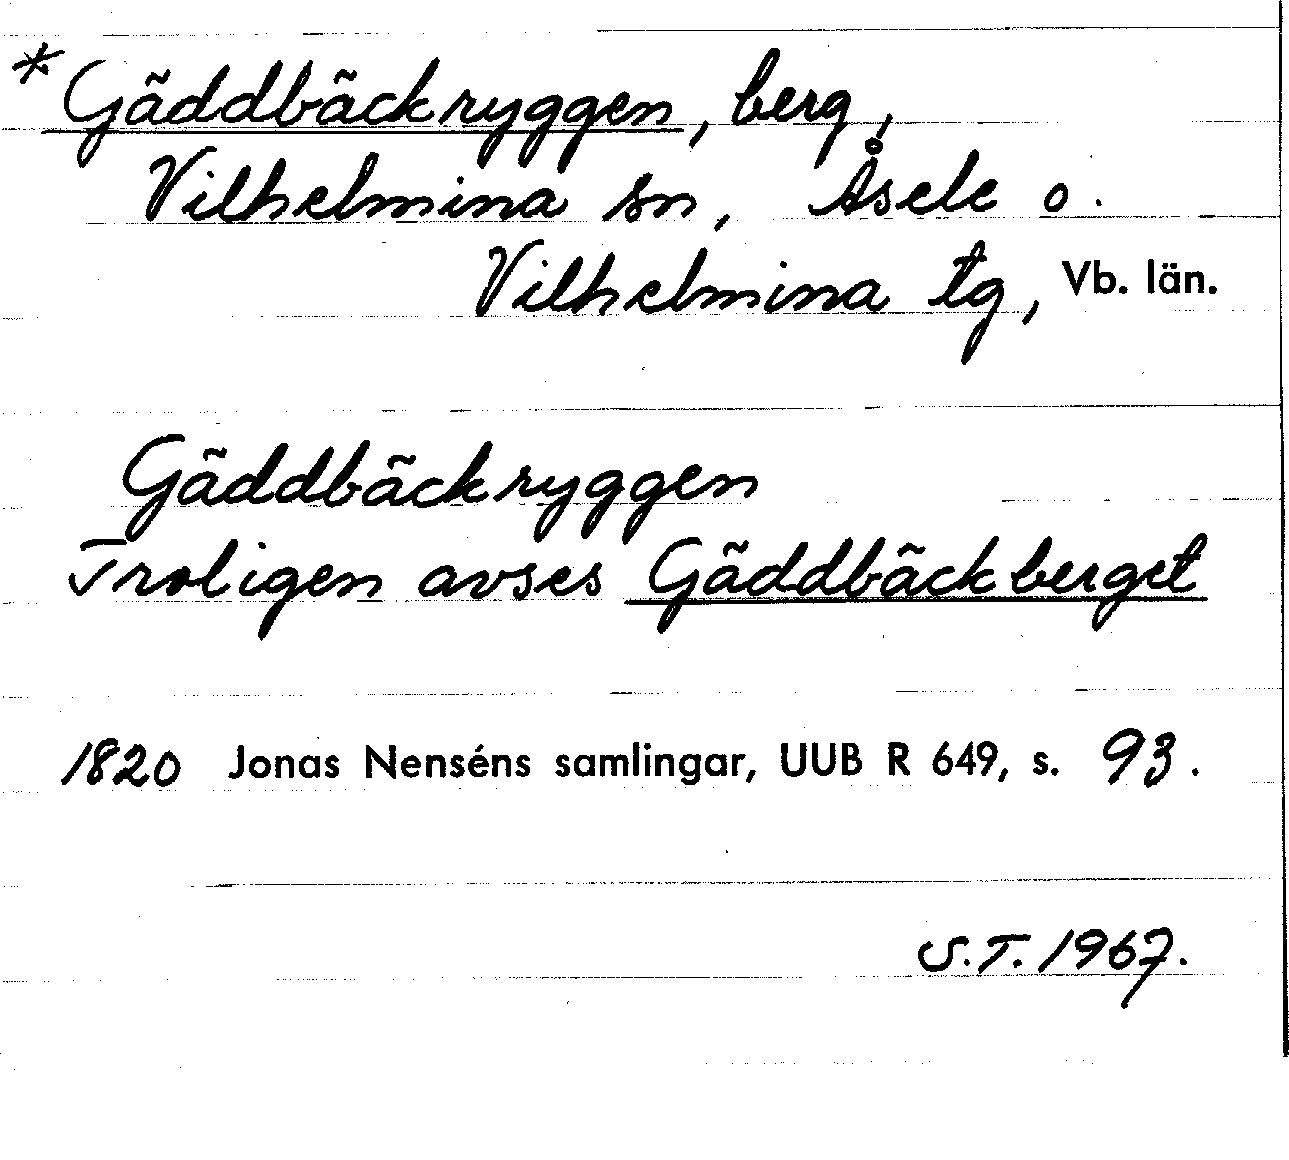 * Gäddbäckryggen, berg,
Vilhelmina sn, Åsele o.
Vilhelmina tg, Vb. län.
Gäddbäckryggen
Troligen avses Gäddbäckberget
1820 Jonas Nenséns samlingar, UUB R 649, s. 93.
S.T. 1967.